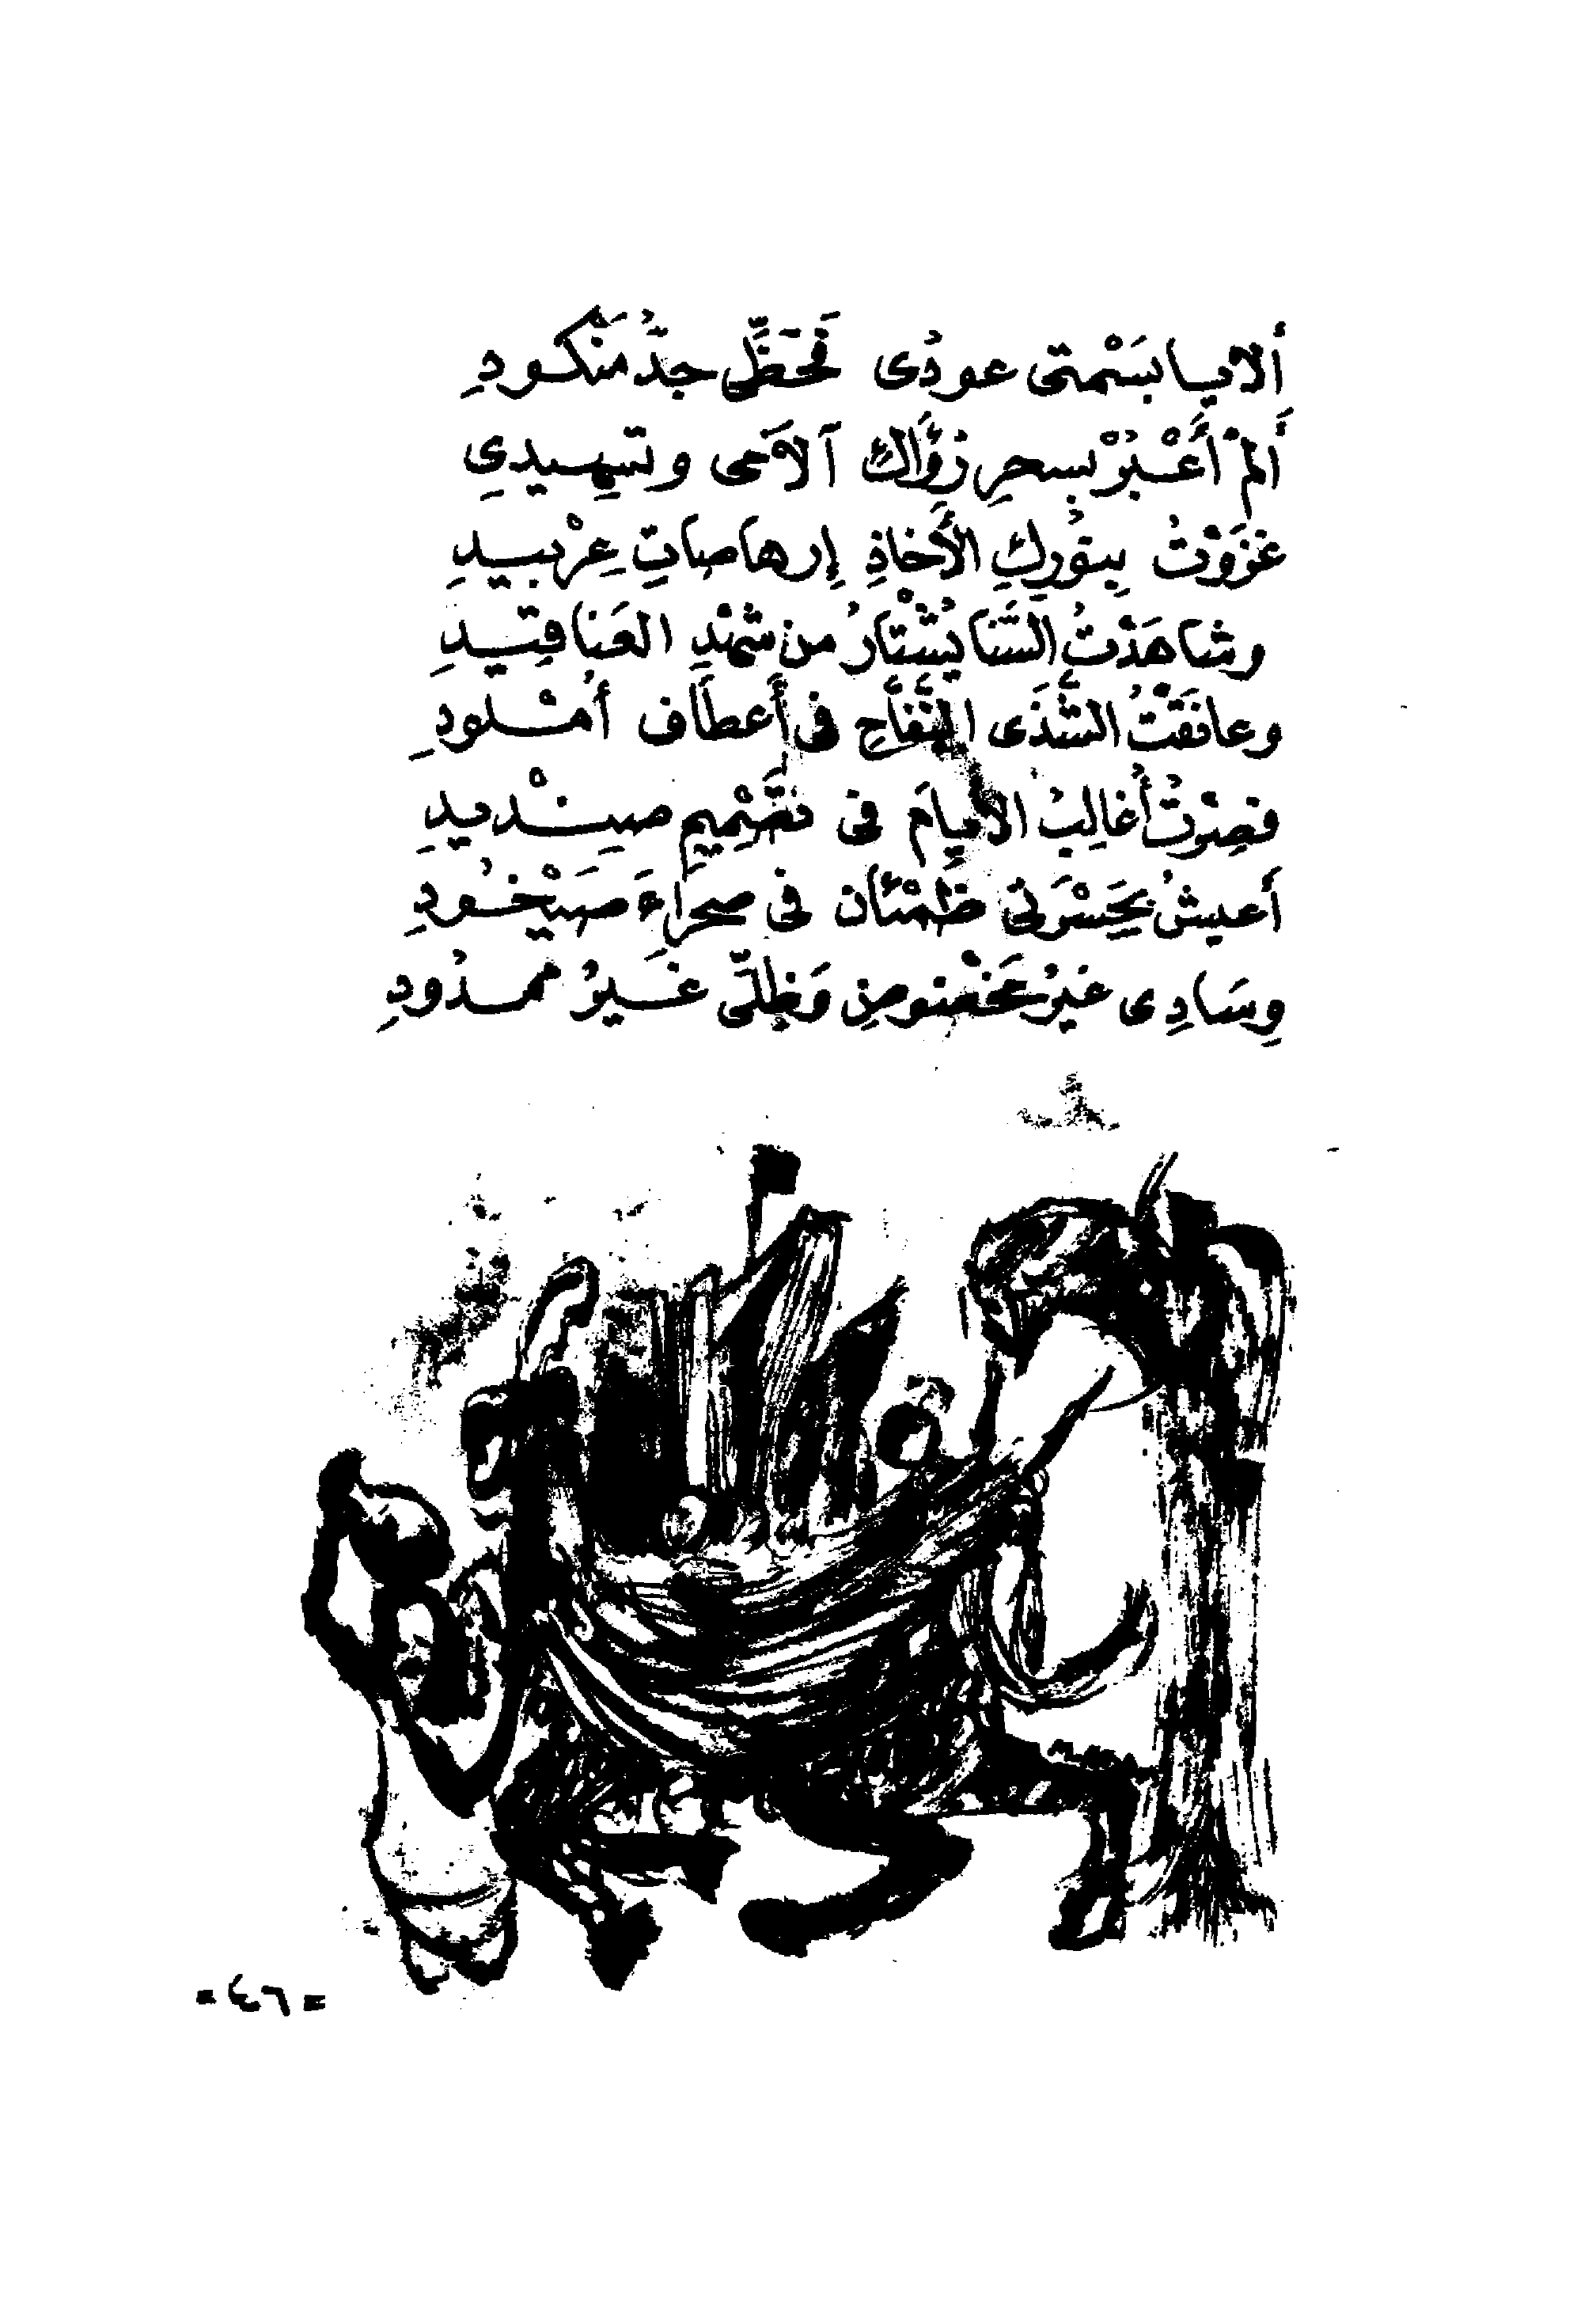 ألا يا بسْمتى عودُى فَحَظِّى جدُّ مَنْكودِ
أَلمْ أَعْبُرْ بِسحرِ رُؤَاكِ آلاَمى وتسهِيدِي
غزَوْتُ بِنورِكِ الأَخاذِ إِرهاصاتِ عِرْبيدِ
وشاهَدْتُ السَّنا يُشْتارُ من شهْدِ العَناقيدِ
وعانَقْتُ الشَّذَى النَّفَّاحِ فى أَعطَاف أُمْلودِ
فصِرْتُ أُغالِبُ الأيامَ فى تصْمِيمِ صِنْديدِ
أَعيشُ بِحَسْرَتى ظمْئان فى صحرَاءَ صَيْخُودِ
وِسَادِى غيرُ مخْضودٍ وَظِلِّى غَيرُ ممدُودِ
- ٤٦ =